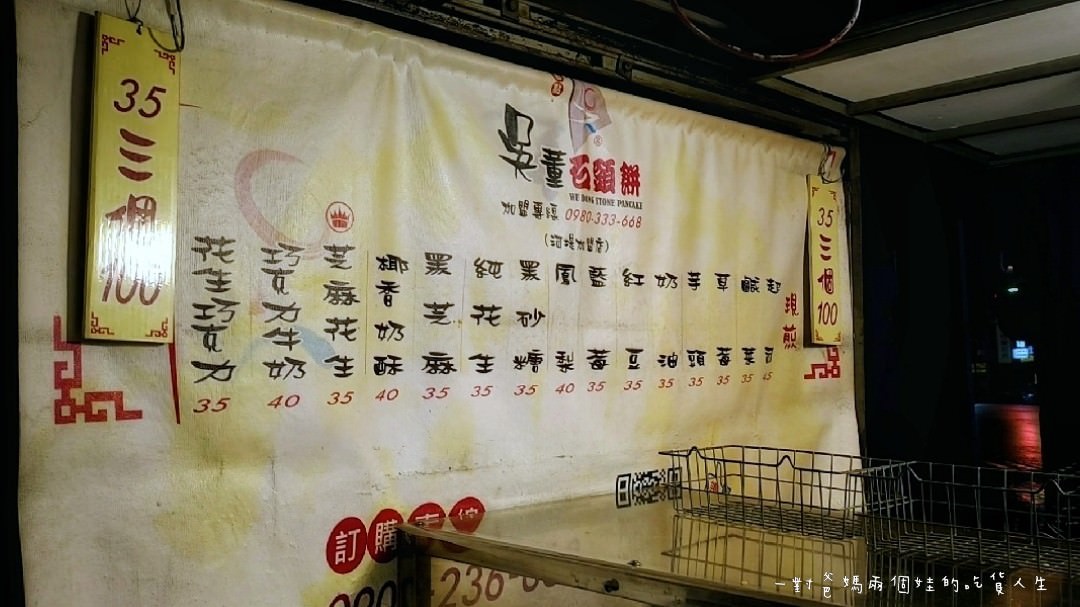 35三個100
吳董石頭餅
WU DONG STONE PANCAKE
加盟專線 0980-333-668
(河堤加盟店)
花生巧克力 35
巧克力牛奶 40
芝麻花生 35
椰香奶酥 40
黑芝麻 35
純花生 35
黑砂糖 35
鳳梨 40
藍莓 35
紅豆 35
奶油 35
芋頭 35
草莓 35
鹹菜 35
起司 45
現煎
35三個100
訂購專線
-236-
一對爸媽兩個娃的吃貨人生